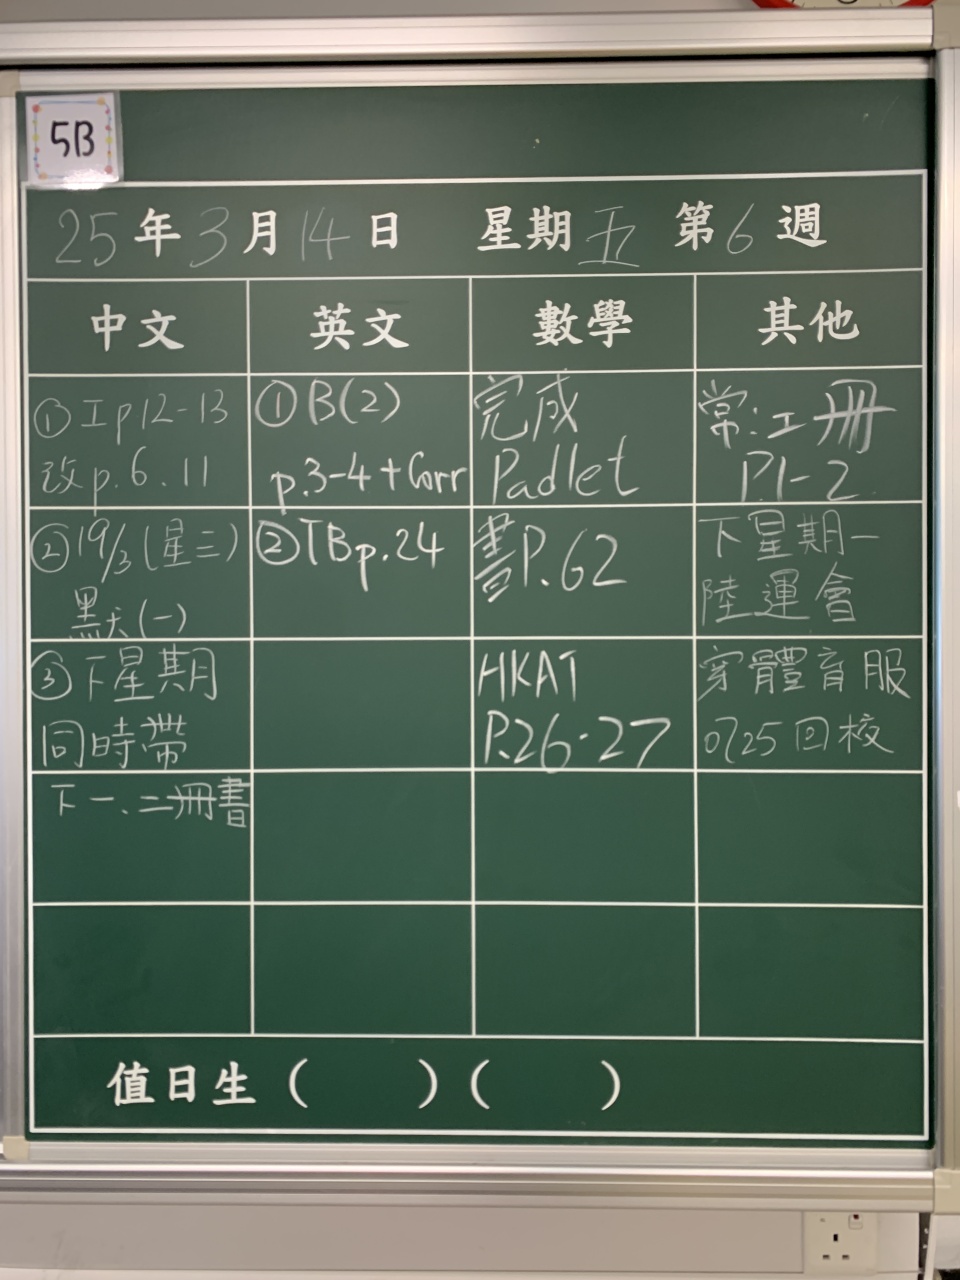 5B
25年3月14日 星期五 第6週
中文 英文 數學 其他
①工p12-13
改p.6.11
①B(2)
p.3-4+Corr
完成
Padlet
常:工冊
P.1-2
②19/3(星三)
默(一)
②TBp.24
書P.62
下星期一
陸運會
③下星期
同時帶
HKAT
P.26-27
穿體育服
0725回校
下一、二冊書
值日生( )( )